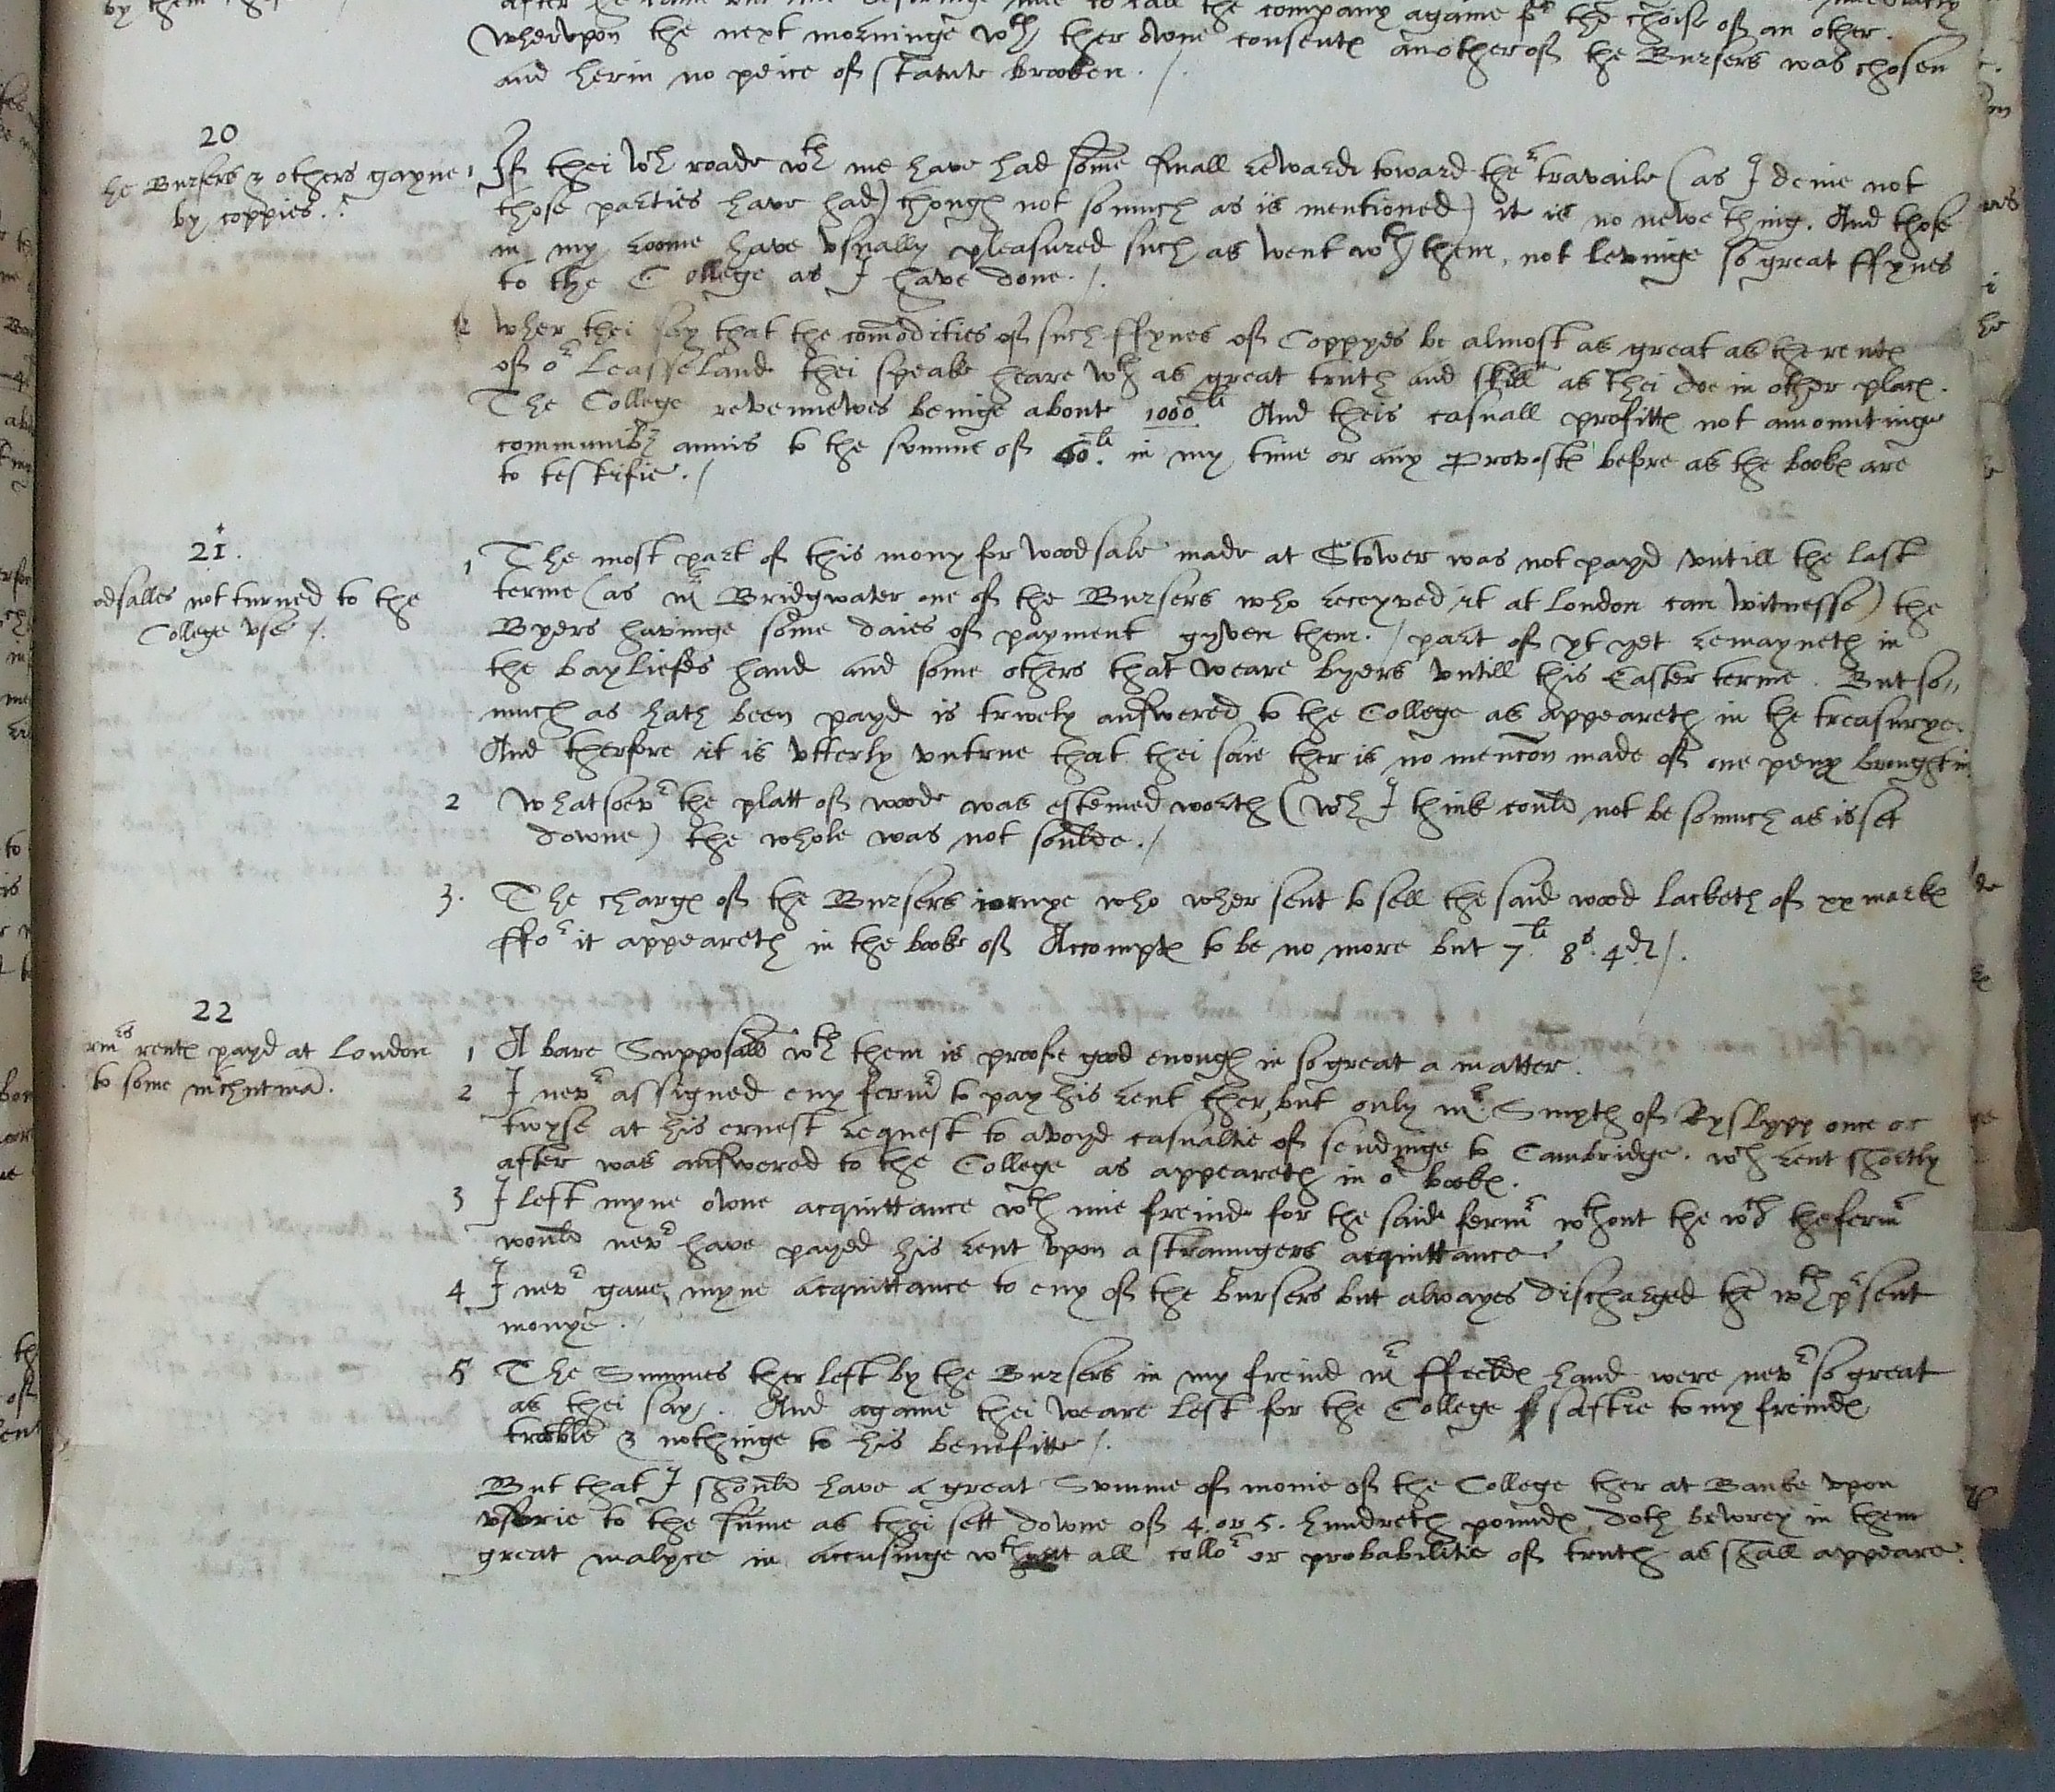 by them
after he came vnto me desiringe me to call the company againe for the choise of an other.
Whervpon the next morninge wth ther owne consente another of the Bursers was chosen
and herin no peice of statute brooken ./
20
he Bursers & others gayne
by coppies.
1 If thei wch roade wth me have had some small rewarde toward ther travaile (as I denie not
those parties have had) though not so much as is mentioned) it is no newe thing. And those
in my roome have vsually pleasured such as went wth them, not levinge so great ffynes
to the College as I have done ./.
2 wher thei say that the comodities of such ffynes of Coppyes be almost as great as the rente
of or Leasse Lande thei speake heare wth as great truth and skill as thei doe in other place.
The College revennewes beinge aboute 1000li And theis casuall profitte not amountinge
communibz annis to the summe of 60li in my time or any Provoste before as the booke are
to testifie ./
21.
odsalles not turned to the
College vse /.
1 The most part of this mony for woodsale made at Stower was not payd vntill the last
terme (as mr Bridgwater one of the Bursers who receyved it at London can witnesse) the
Byers havinge some daies of payment gyven them. / part of yt yet remayneth in
the bayliefes hand and some others that weare byers vntill this Easter terme. But so
much as hath been payd is trwely answered to the College as appeareth in the treasurye.
And therfore it is vtterly vntrue that thei saie ther is no mencon made of one peny brought in
2 Whatsoevr the platt of woode was estemed worth (wch I think could not be so much as is set
downe) the whole was not soulde ./
3. The charge of the Bursers iornye who wher sent to sell the said wood lacketh of xx marke
ffor it appeareth in the booke of Accompte to be no more but 7li 8s. 4d /.
22
rmrs rente payd at London
to some mrchntma.
1 A bare Supposall wth them is proofe good enough in so great a matter.
2 I nevr assigned eny fermr to pay his rent ther, but only mr Smyth of Ryslypp once or
twyse at his ernest request to avoyd casualtie of sendinge to Cambridge. wch rent shortly
after was answered to the College as appeareth in or booke.
3 I left myne owne acquittance wth mie freinde for the saide fermr wthout the wch the fermr
would nevr have payed his rent vpon a straungers acquittance.
4 I nevr gave myne acquittance to eny of the bursers but alwayes discharged the wth prsent
monye.
5 The Summes ther left by the Bursers in my freind mr ffeelde hand were nevr so great
as thei say. And againe thei weare left for the College saftie to my freinde
trooble & nothinge to his benefitte /.
But that I should have a great Summe of monie of the College ther at Banke vpon
vsurie to the sume as thei sett downe of 4. or 5. hundreth pounde, doth bewrey in them
great malyce in accusinge wthout all collor or probabilitie of truth as shall appeare.